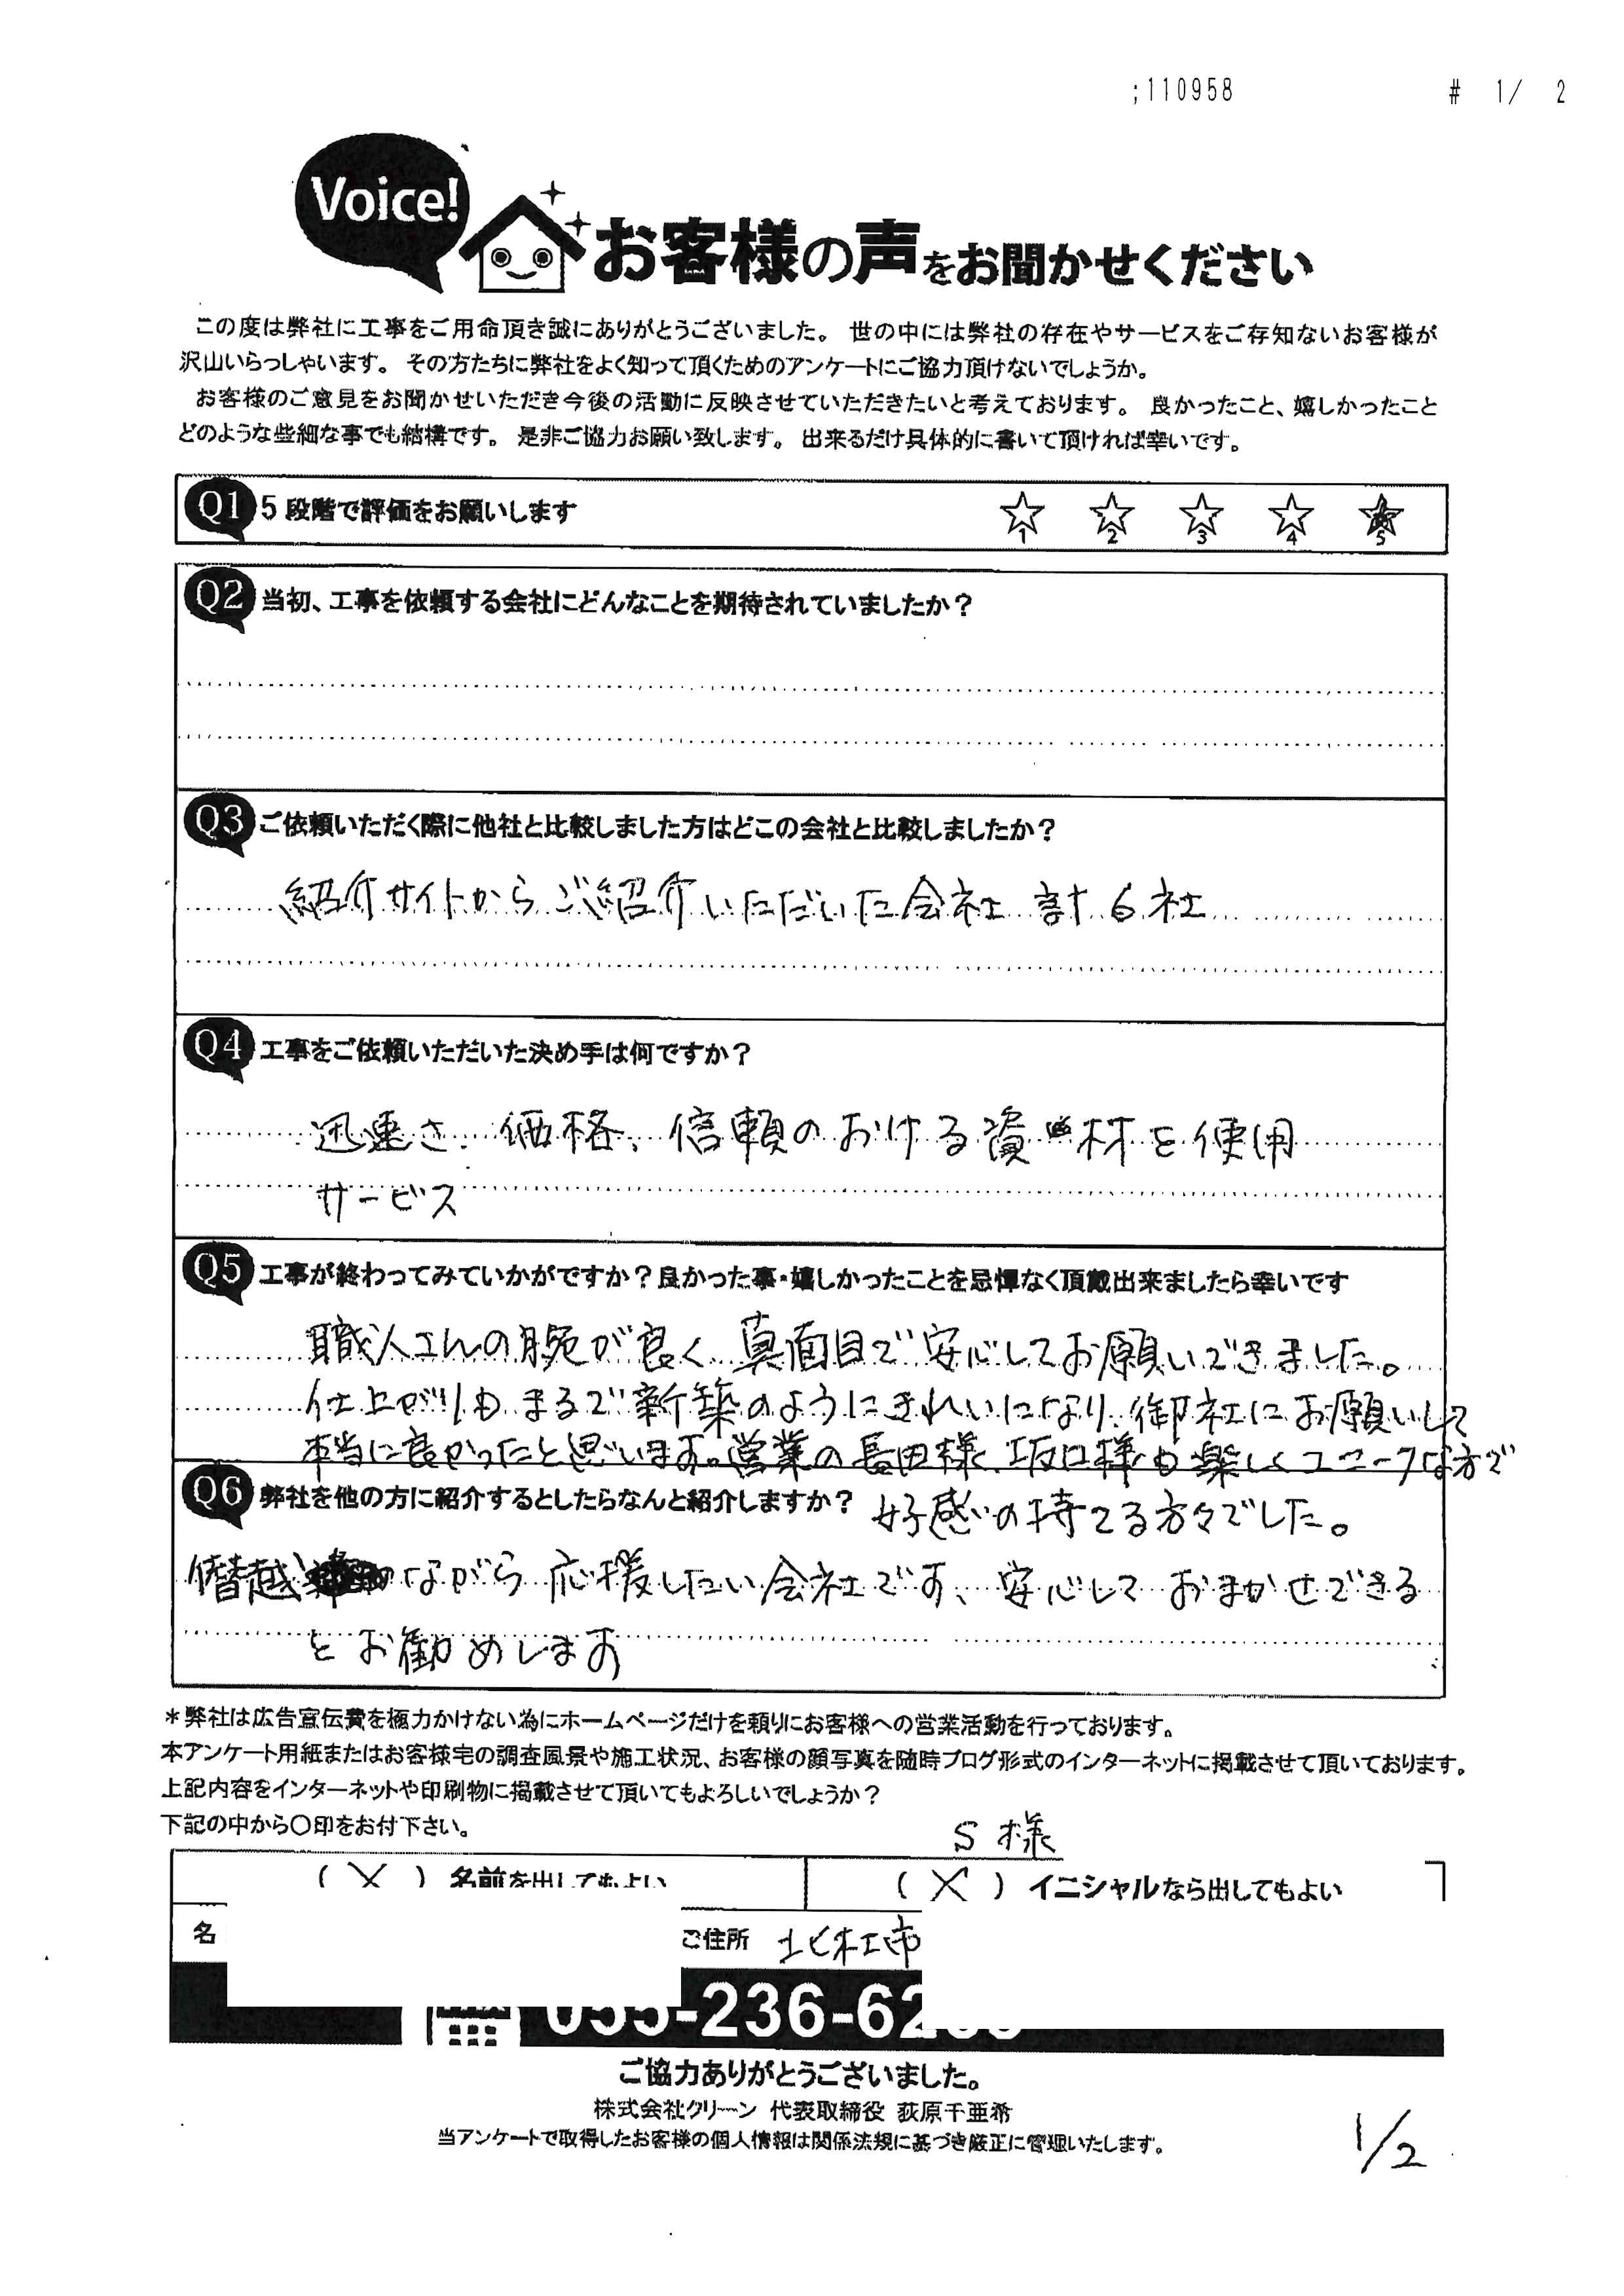 ;110958 # 1/ 2
Voice!
お客様の声をお聞かせください
この度は弊社に工事をご用命頂き誠にありがとうございました。 世の中には弊社の存在やサービスをご存知ないお客様が
沢山いらっしゃいます。 その方たちに弊社をよく知って頂くためのアンケートにご協力頂けないでしょうか。
お客様のご意見をお聞かせいただき今後の活動に反映させていただきたいと考えております。 良かったこと、嬉しかったこと
どのような些細な事でも結構です。 是非ご協力お願い致します。 出来るだけ具体的に書いて頂ければ幸いです。
Q1 5段階で評価をお願いします ☆1 ☆2 ☆3 ☆4 ★5
Q2 当初、工事を依頼する会社にどんなことを期待されていましたか?
Q3 ご依頼いただく際に他社と比較しました方はどこの会社と比較しましたか?
紹介サイトからご紹介いただいた会社 計6社
Q4 工事をご依頼いただいた決め手は何ですか?
迅速さ、価格、信頼のおける資材を使用
サービス
Q5 工事が終わってみていかがですか?良かった事・嬉しかったことを忌憚なく頂戴出来ましたら幸いです
職人さんの腕が良く、真面目で安心してお願いできました。
仕上がりもまるで新築のようにきれいになり、御社にお願いして
本当に良かったと思います。営業の長田様、坂口様も楽しくユニークな方で
好感の持てる方々でした。
Q6 弊社を他の方に紹介するとしたらなんと紹介しますか?
僭越ながら応援したい会社です、安心しておまかせできる
とお勧めします
*弊社は広告宣伝費を極力かけない為にホームページだけを頼りにお客様への営業活動を行っております。
本アンケート用紙またはお客様宅の調査風景や施工状況、お客様の顔写真を随時ブログ形式のインターネットに掲載させて頂いております。
上記内容をインターネットや印刷物に掲載させて頂いてもよろしいでしょうか?
下記の中から〇印をお付下さい。
S様
(×) 名前を出してもよい (×) イニシャルなら出してもよい
名 ご住所 北杜市
055-236-62
ご協力ありがとうございました。
株式会社クリーン 代表取締役 荻原千亜希
当アンケートで取得したお客様の個人情報は関係法規に基づき厳正に管理いたします。
1/2